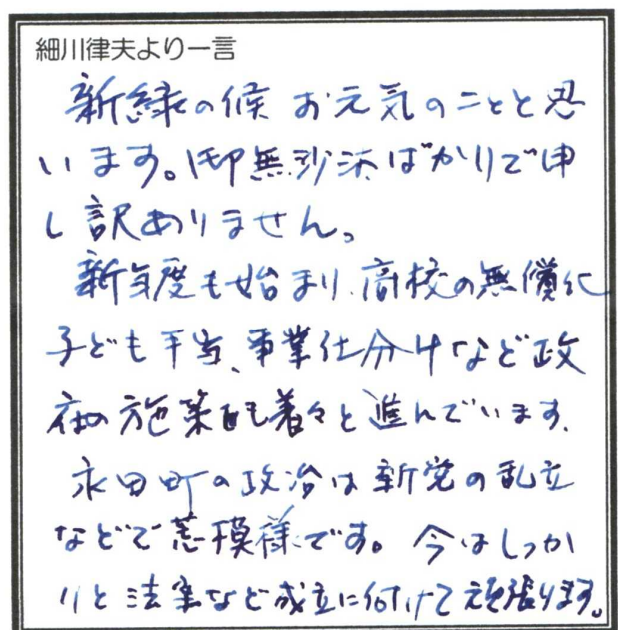 細川律夫より一言
新緑の候 お元気のことと思
います。御無沙汰ばかりで申
し訳ありません。
新年度も始まり、高校の無償化
子ども手当、事業仕分けなど政
府の施策も着々と進んでいます。
永田町の政治は新党の乱立
などで荒模様です。今はしっか
りと法案など成立に付けて頑張ります。